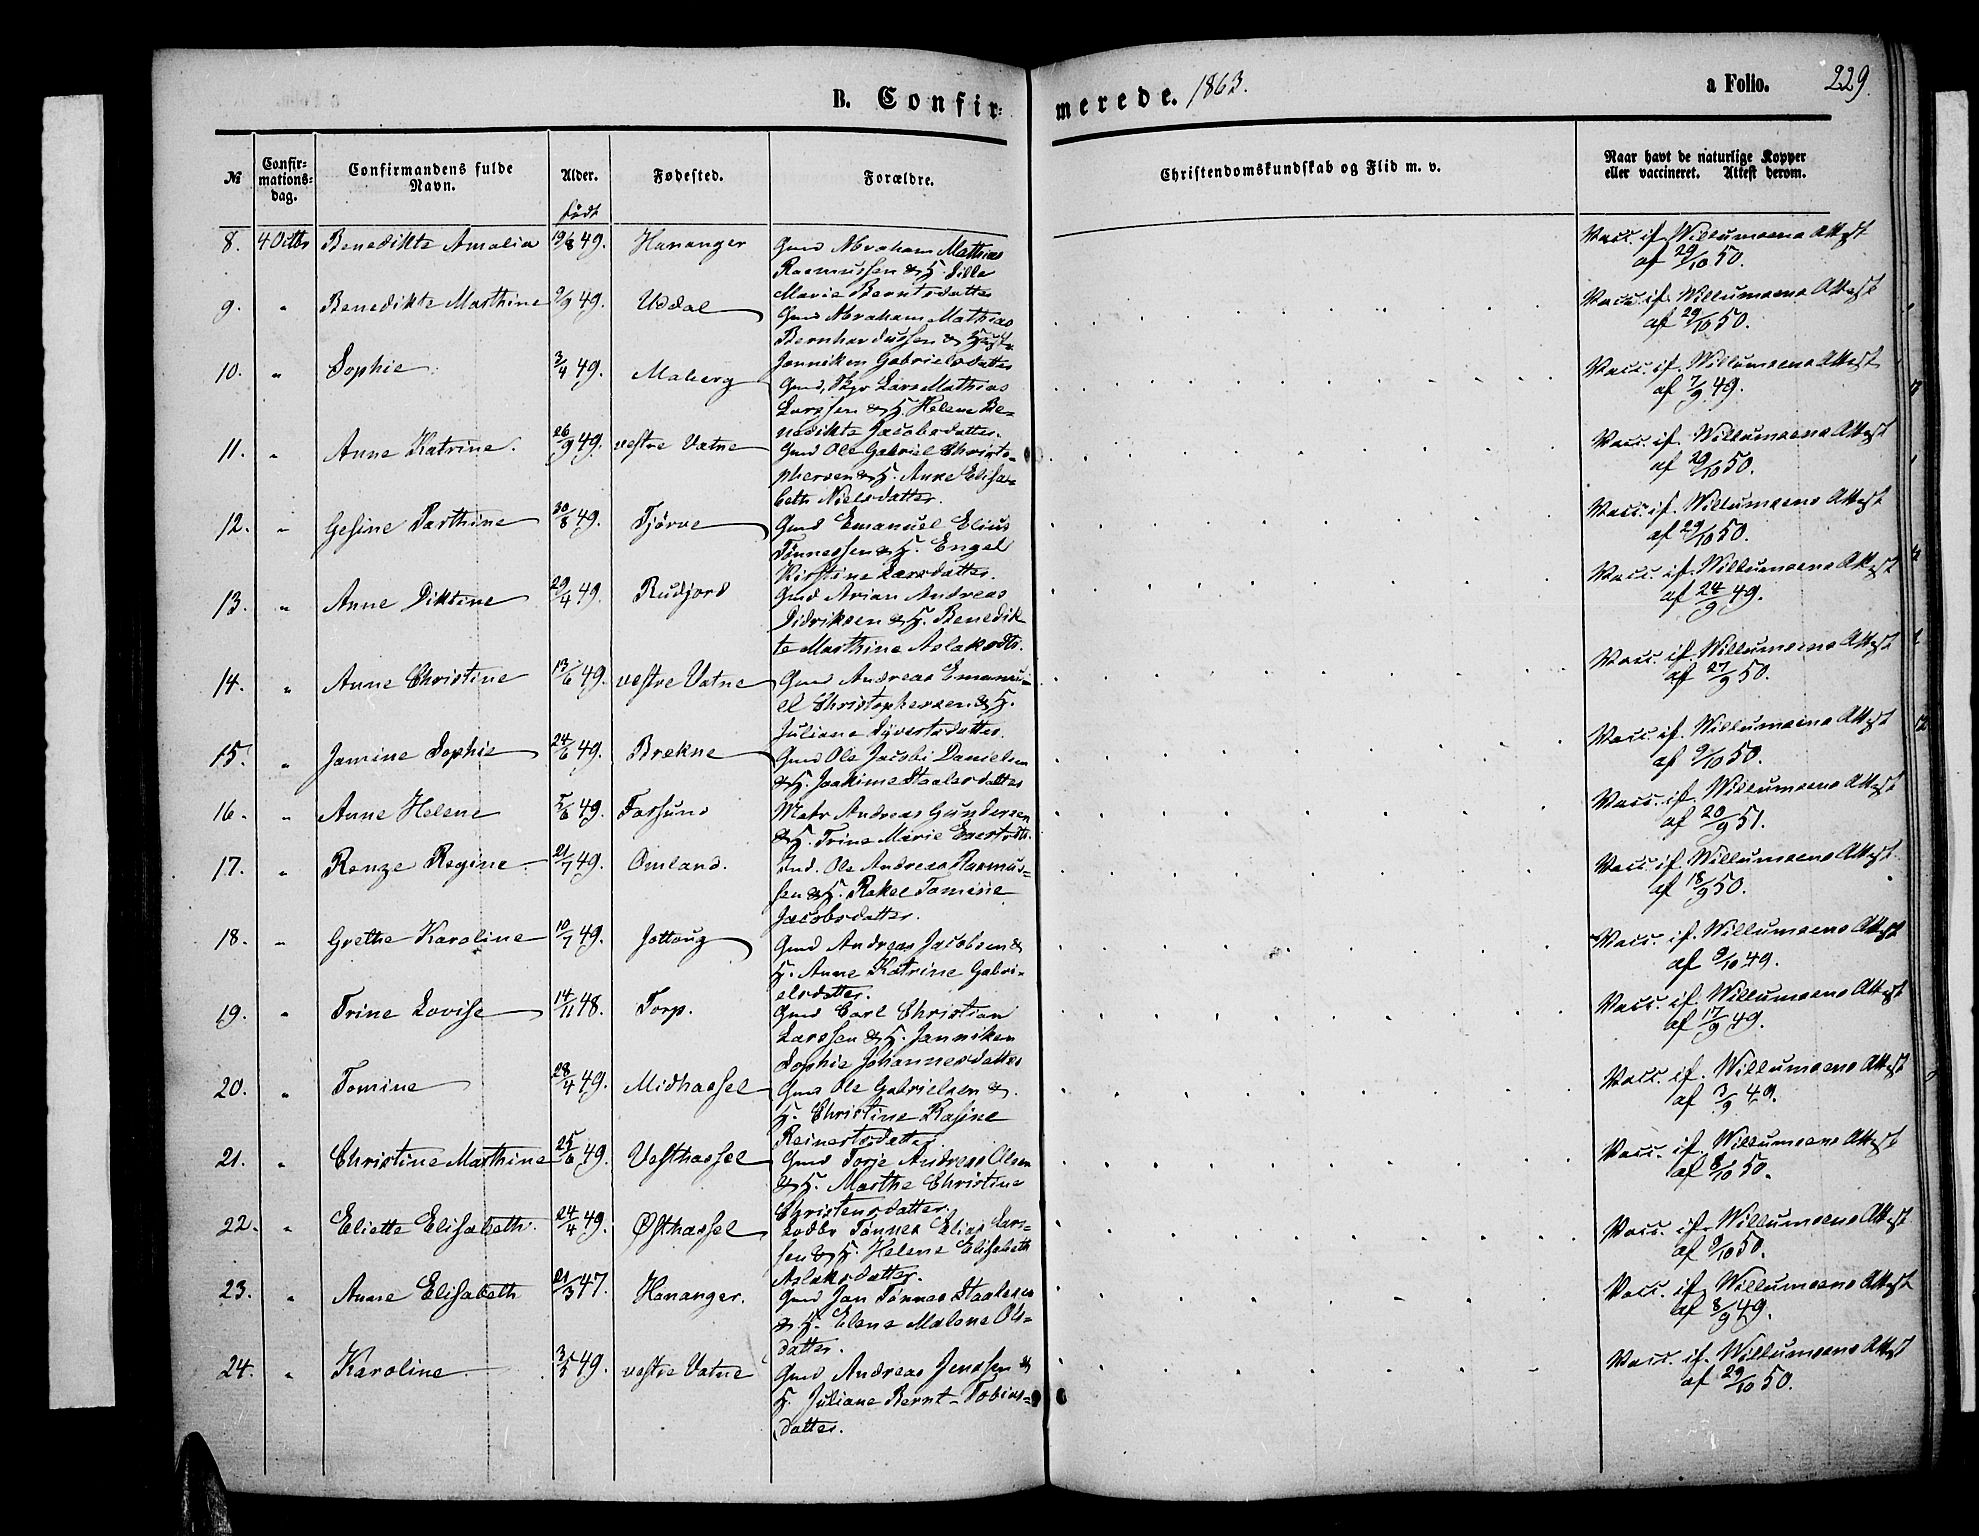 B. Confir=
merede. 1863.
a Folio. 229.
№
Confir=
mations=
dag.
Confirmandens fulde
Navn.
Alder.
Fødested.
Forældre.
Christendomskundskab og Flid m. v.
Naar havt de naturlige Kopper
eller vaccineret. Attest derom.
født
8. 4 Octbr Benedikte Amalia 19/8 49. Hananger Gmd Abraham Mathias
Rasmussen & H. Sille
Marie Berntsdatter
Vacc. if. Willumsens Attest
af 29/10 50.
9. " Benedikte Marthine 9/9 49. Uddal Gmd Abraham Mathias
Bernhardussen & Hust.
Janniken Gabrielsdatter
Vacc. if. Willumsens Attest
af 29/10 50.
10. " Sophie 3/4 49. Maberg Gmd, Lars Mathias
Larssen & H. Helene Be=
nedikte Jacobsdatter.
Vacc. if. Willumsens Attest
af 7/9 49.
11. " Anne Katrine. 26/9 49. vestre Vatne Gmd Ole Gabriel Christo=
phersen & H. Anne Elisa=
beth Nielsdatter.
Vacc. if. Willumsens Attest
af 29/10 50.
12. " Gesine Parthine 30/8 49. Tjørve Gmd Emanuel Elius
Tønnessen & H. Engel
Kirstine Larsdatter.
Vacc. if. Willumsens Attest
af 29/10 50.
13. " Anne Diktine 29/4 49. Rudjord Gmd Arian Andreas
Didriksen & H. Benedik
te Marthine Aslaksdtr.
Vacc. if. Willumsens Attest
af 24/9 49.
14. " Anne Christine 13/6 49. vestre Vatne Gmd Andreas Emanu=
el Christophersen & H.
Juliane Syvertsdatter.
Vacc. if. Willumsens Attest
af 27/9 50.
15. " Jamine Sophie 24/6 49. Brekne Gmd Ole Jacobi Danielsen
& H. Joakime Staalesdatter
Vacc. if. Willumsens Attest
af 9/10 50.
16. " Anne Helene 5/6 49. Farsund Matr Andreas Gundersen
& H. Trine Marie Evertsdtr.
Vacc. if. Willumsens Attest
af 20/9 51.
17. " Renze Regine 21/7 49. Omland. Ind. Ole Andreas Rasmus=
sen & H. Rakel Tomine
Jacobsdatter.
Vacc. if. Willumsens Attest.
af 18/9 50.
18. " Grethe Karoline 10/7 49. Jottoug Gmd Andreas Jacobsen &
H. Anne Katrine Gabri=
elsdatter.
Vacc. if. Willumsens Attest
af 9/10 49.
19. " Trine Lovise 14/11 48. Torp. Gmd Carl Christian
Larssen & H. Janniken
Sophie Johannesdatter
Vacc. if. Willumsens Attest
af 17/9 49.
20. " Tomine 28/4 49. Midhassel Gmd Ole Gabrielsen &
H. Christine Rasine
Reinertsdatter
Vacc. if. Willumsens Attest
af 3/9 49.
21. " Christine Marthine 25/6 49. Vesthassel Gmd Torje Andreas Olsen
& H. Marthe Christine
Christensdatter.
Vacc. if. Willumsens Attest
af 8/10 50.
22. " Eliette Elisabeth. 24/4 49. Østhassel Lodbr Tønnes Elias Lars=
sen & H. Helene Elisabeth
Aslaksdatter.
Vacc. if. Willumsens Attest
af 9/10 50.
23. " Anne Elisabeth 21/3 47. Hananger. Gmd Jan Tønnes Staalesen
& H. Elene Malene Ols=
datter.
Vacc. if. Willumsens Attest
af 8/9 49.
24. " Karoline 3/5 49. vestre Vatne Gmd Andreas Jenssen &
H. Juliane Bernt-Tobias=
datter.
Vacc. if. Willumsens Attest
af 29/10 50.